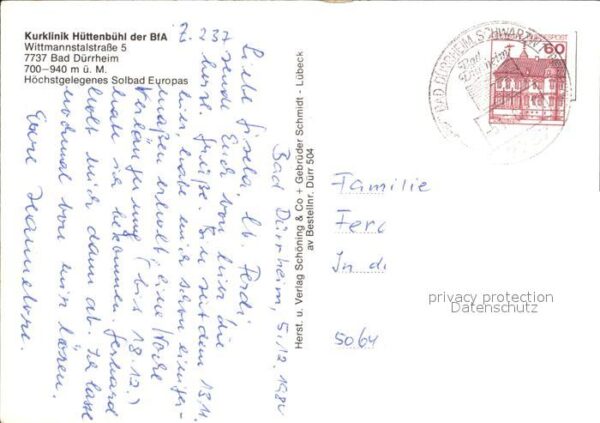 Kurklinik Hüttenbühl der BfA
Wittmannstalstraße 5
7737 Bad Dürrheim
700–940 m ü. M.
Höchstgelegenes Solbad Europas
Z. 237
Bad Dürrheim, 5.12.1980
Liebe Gisela, lb. Ferdi
sende Euch von hier die
herzl. Grüße. Bin seit dem 13.11.
hier, habe mich schon einiger-
maßen erholt, eine Woche
Verlängerung (bis 18.12.)
habe ich bekommen. Gerhard
holt mich dann ab. Ich lasse
nochmal von mir hören.
Eure Hannelore.
Herst. u. Verlag Schöning & Co + Gebrüder Schmidt - Lübeck
av Bestellnr. Dürr 504
BAD DÜRRHEIM, SCHWARZW
60
Familie
Ferd
In d
5064
privacy protection
Datenschutz